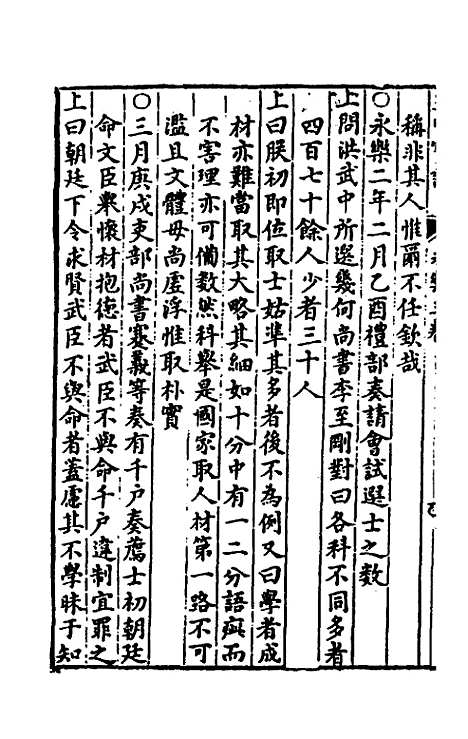 稱非其人惟爾不任欽哉
○永樂二年二月乙酉禮部奏請會試選士之數
上問洪武中所選幾何尚書李至剛對曰各科不同多者
四百七十餘人少者三十人
上曰朕初即位取士姑準其多者後不為例又曰學者成
材亦難當取其大略其細如十分中有一二分語疵而
不害理亦可備數然科舉是國家取人材第一路不可
濫且文體毋尚虛浮惟取朴實
○三月庚戌吏部尚書蹇義等奏有千戶奏薦士初朝廷
命文臣舉懷材抱德者武臣不與命千戶違制宜罪之
上曰朝廷下令求賢武臣不與命者蓋慮其不學昧于知